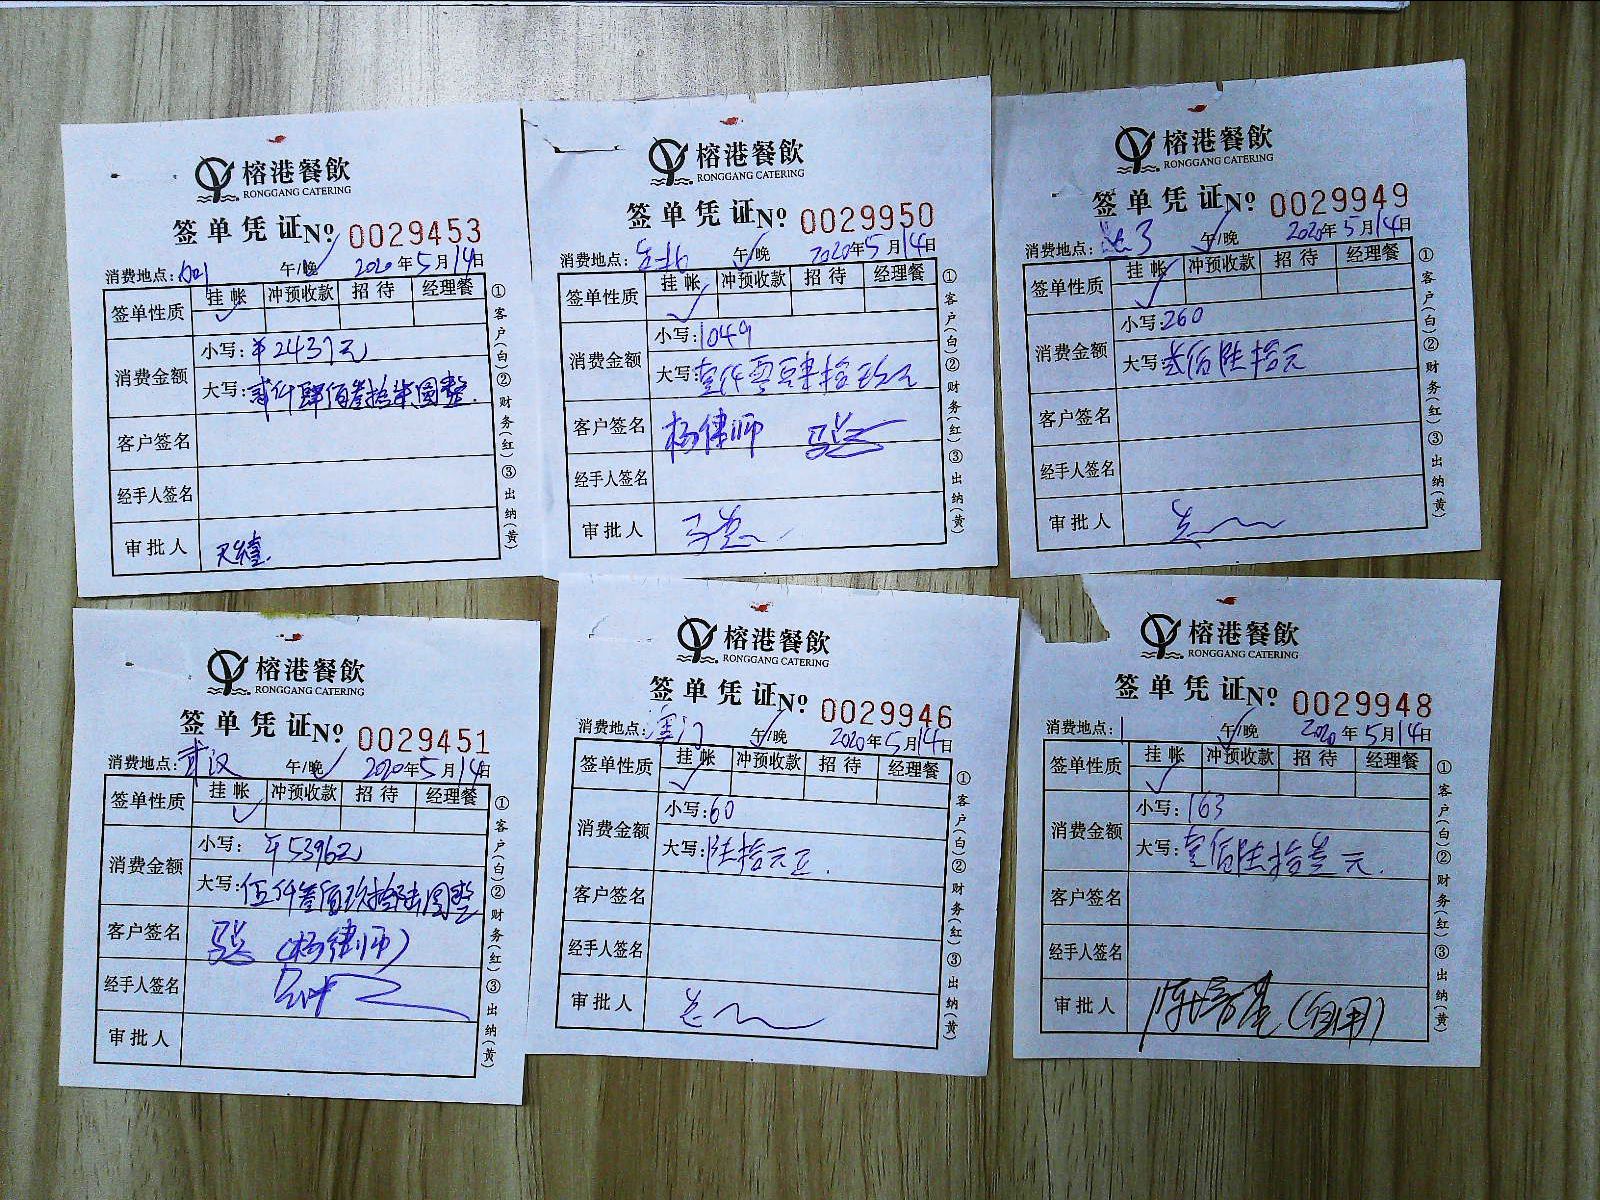 榕港餐飲
RONGGANG CATERING
签单凭证 № 0029453
消费地点: 午/晚 2020年5月14日
签单性质 挂帐 冲预收款 招待 经理餐
消费金额 小写:¥2437元
大写:贰仟肆佰叁拾柒圆整.
客户签名
经手人签名
审批人
①客户(白)②财务(红)③出纳(黄)
榕港餐飲
RONGGANG CATERING
签单凭证 № 0029950
消费地点: 午/晚 2020年5月14日
签单性质 挂帐 冲预收款 招待 经理餐
消费金额 小写:1049
大写:壹仟零肆拾玖元
客户签名 杨律师
经手人签名
审批人
①客户(白)②财务(红)③出纳(黄)
榕港餐飲
RONGGANG CATERING
签单凭证 № 0029949
消费地点: 3 午/晚 2020年5月14日
签单性质 挂帐 冲预收款 招待 经理餐
消费金额 小写:260
大写:贰佰陆拾元
客户签名
经手人签名
审批人
①客户(白)②财务(红)③出纳(黄)
榕港餐飲
RONGGANG CATERING
签单凭证 № 0029451
消费地点:武汉 午/晚 2020年5月14日
签单性质 挂帐 冲预收款 招待 经理餐
消费金额 小写:¥5396元
大写:伍仟叁佰玖拾陆圆整
客户签名 (杨律师)
经手人签名
审批人
①客户(白)②财务(红)③出纳(黄)
榕港餐飲
RONGGANG CATERING
签单凭证 № 0029946
消费地点:澳门 午/晚 2020年5月14日
签单性质 挂帐 冲预收款 招待 经理餐
消费金额 小写:60
大写:陆拾元正.
客户签名
经手人签名
审批人
①客户(白)②财务(红)③出纳(黄)
榕港餐飲
RONGGANG CATERING
签单凭证 № 0029948
消费地点: 午/晚 2020年5月14日
签单性质 挂帐 冲预收款 招待 经理餐
消费金额 小写:163
大写:壹佰陆拾叁元.
客户签名
经手人签名
审批人 (自用)
①客户(白)②财务(红)③出纳(黄)